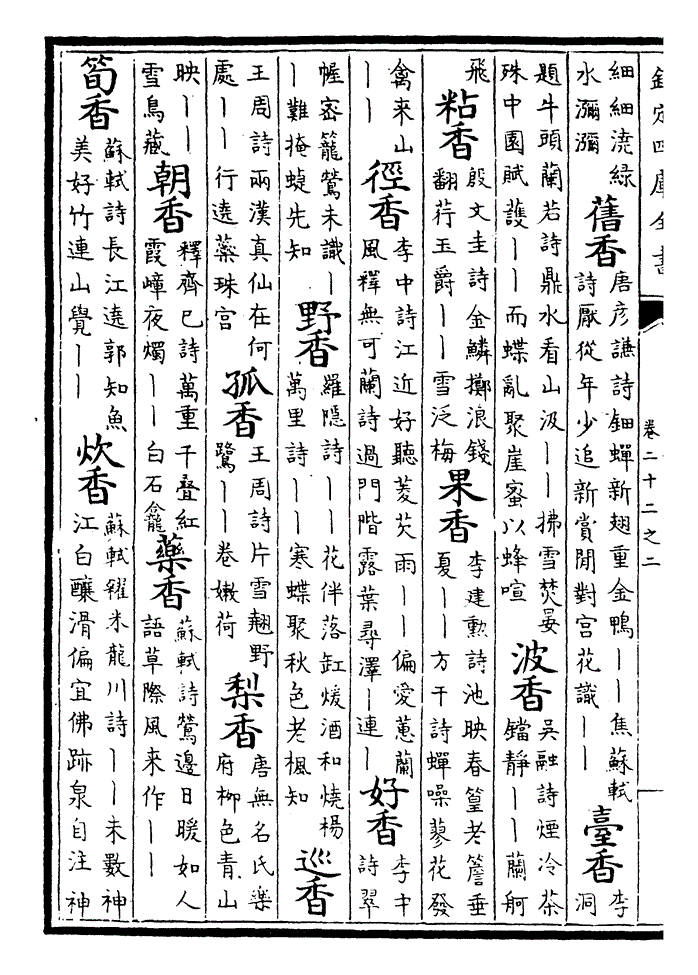 欽定四庫全書
卷二十二之二
細細澆綠水瀰瀰 舊香 唐彦謙詩鈿蟬新翅重金鴨——焦蘇軾詩厭從年少追新賞閒對宫花識—— 臺香 李洞
題牛頭蘭若詩鼎水看山汲——拂雪焚晏殊中園賦䕶——而蝶亂聚崖蜜以蜂喧 波香 吳融詩煙冷茶鐺靜——蘭舸
飛 粘香 殷文圭詩金鱗擲浪錢翻荇玉爵——雪泛梅 果香 李建勲詩池映春篁老簷垂夏——方干詩蟬噪蓼花發
禽来山—— 徑香 李中詩江近好聽菱芡雨——偏愛蕙蘭風釋無可蘭詩過門階露葉尋澤—連— 好香 李中詩翠
幄密籠鶯未識——難掩蜨先知 野香 羅隱詩——花伴落缸煖酒和燒楊萬里詩——寒蝶聚秋色老楓知 巡香
王周詩兩漢真仙在何處——行遶蘂珠宫 孤香 王周詩片雪翹野鷺——卷嫩荷 梨香 唐無名氏樂府柳色青山
映——雪鳥藏 朝香 釋齊已詩萬重千叠紅霞嶂夜燭——白石龕 藥香 蘇軾詩鶯邊日暖如人語草際風来作——
筍香 蘇軾詩長江遶郭知魚美好竹連山覺—— 炊香 蘇軾糴米龍川詩——未數神江白釀滑偏宜佛跡泉自注神